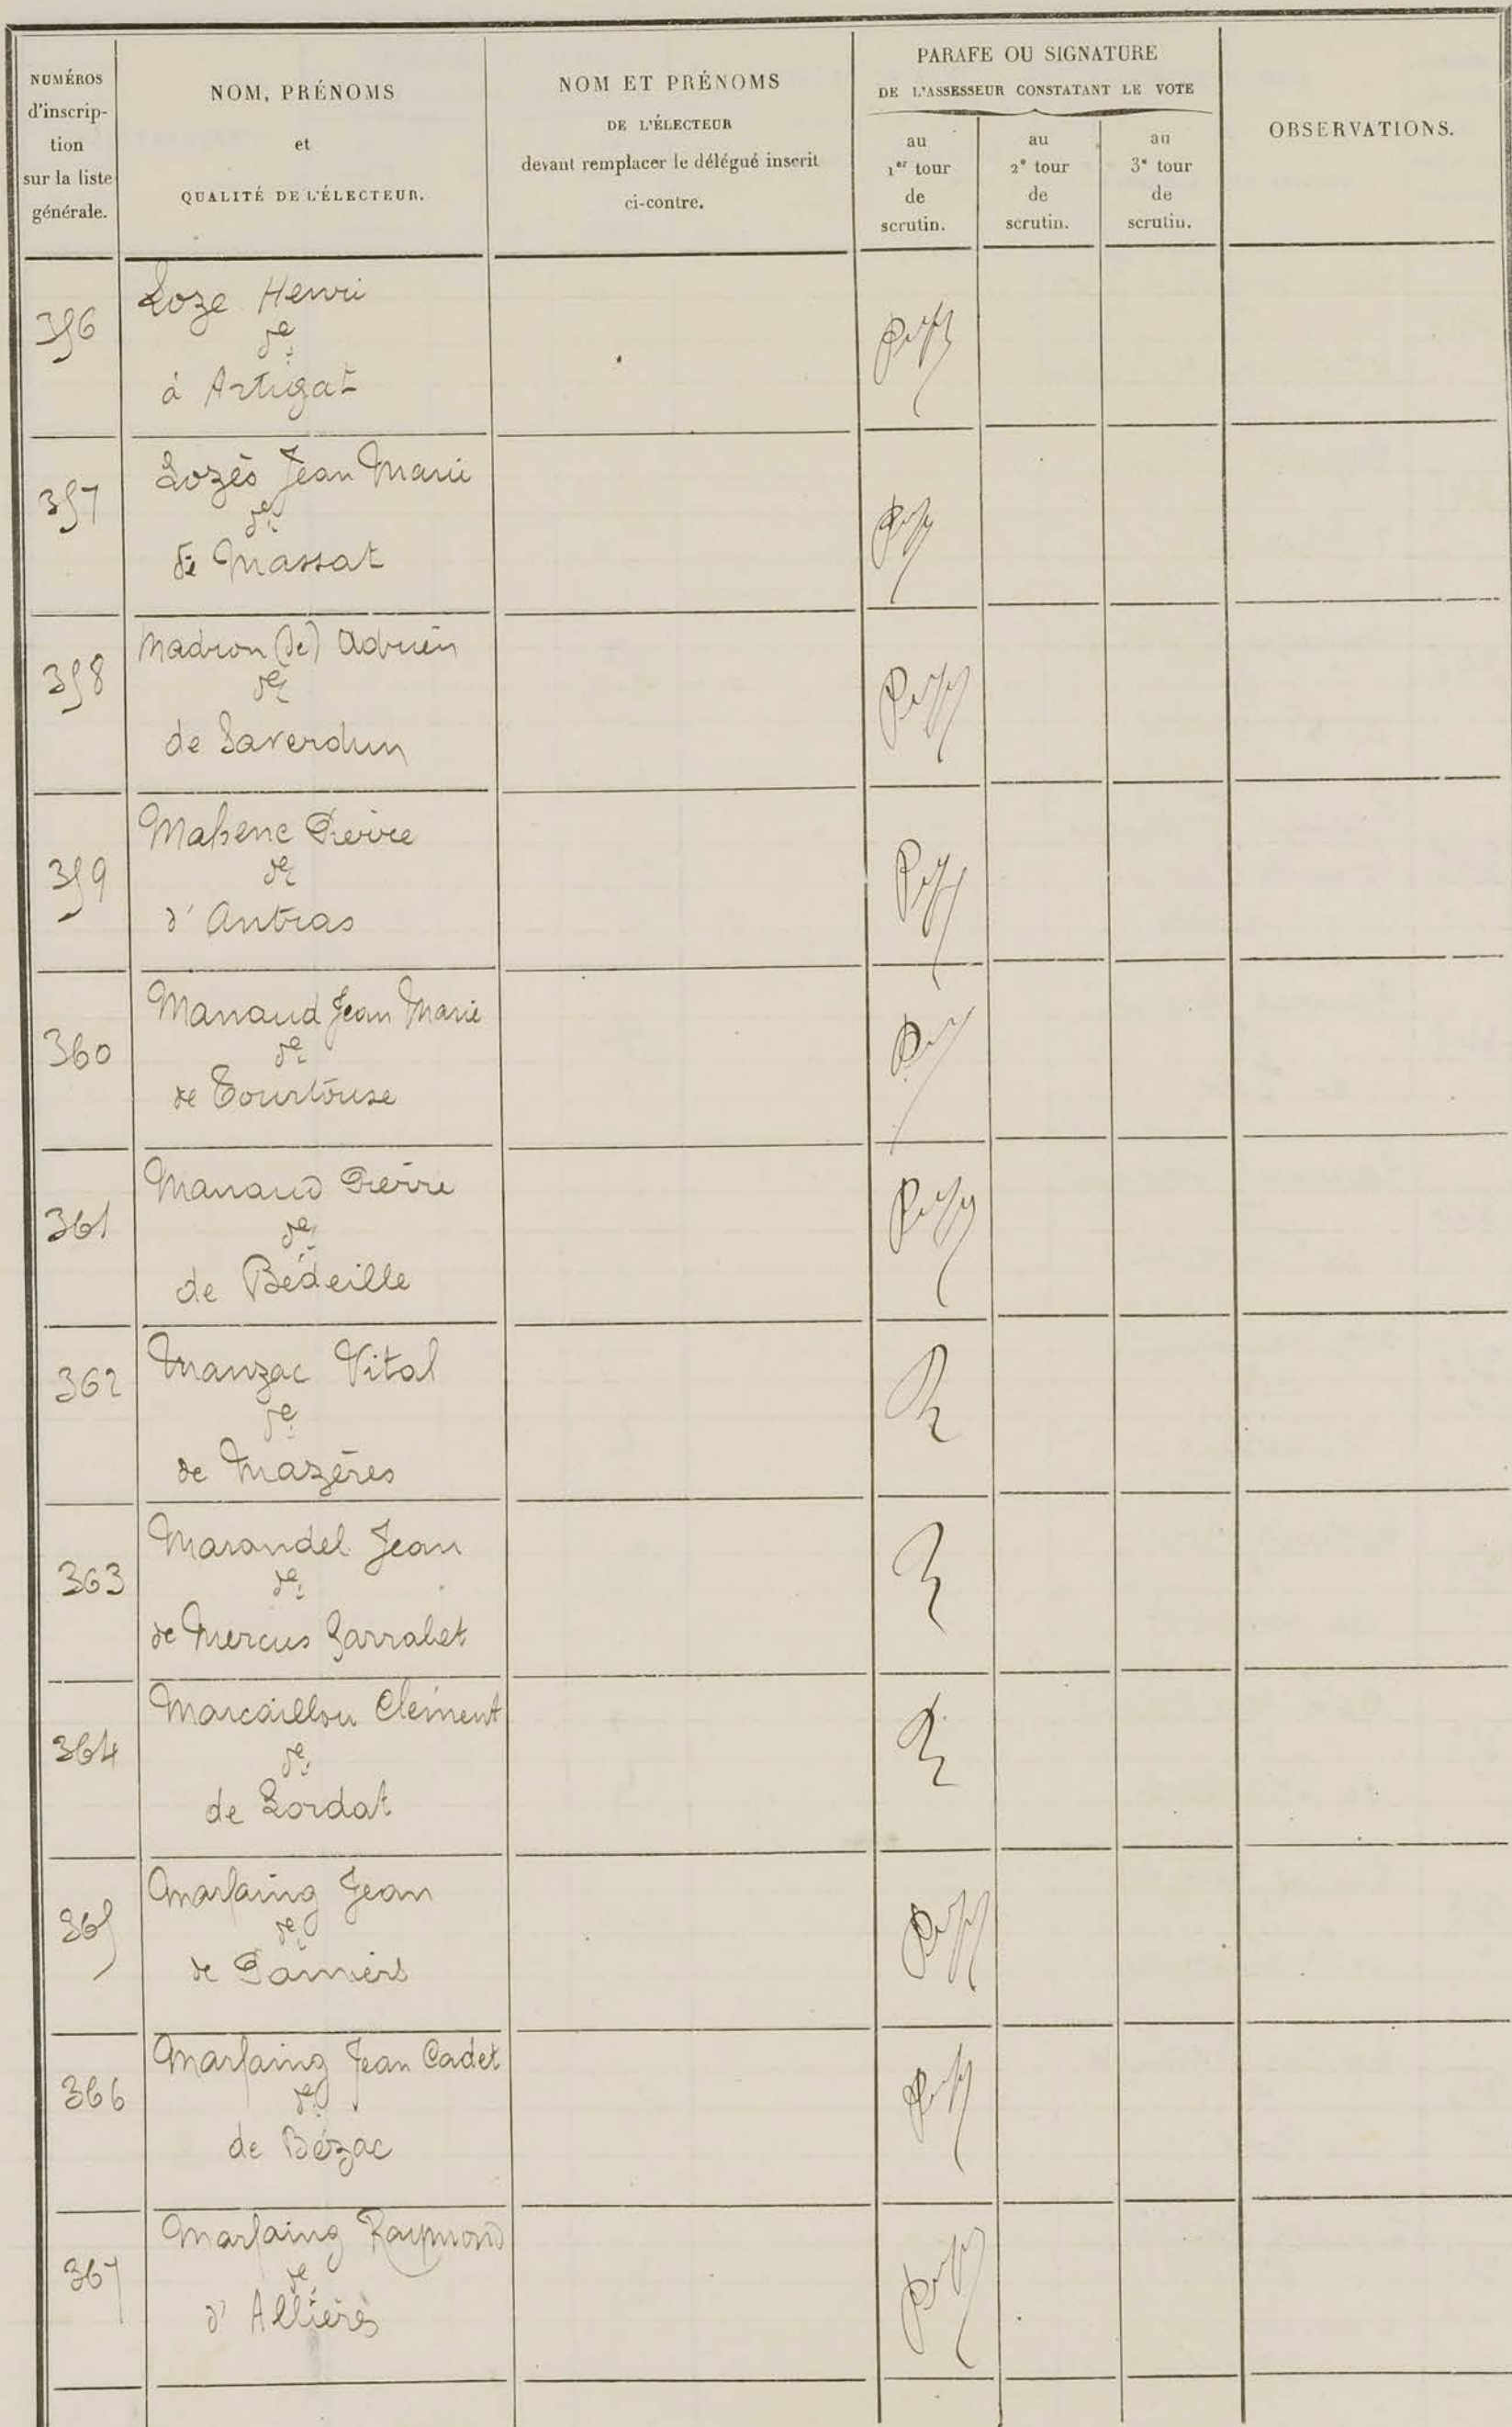 NUMÉROS
d'inscrip-
tion
sur la liste
générale.
NOM, PRÉNOMS
et
QUALITÉ DE L'ÉLECTEUR.
NOM ET PRÉNOMS
DE L'ÉLECTEUR
devant remplacer le délégué inscrit
ci-contre.
PARAFE OU SIGNATURE
DE L'ASSESSEUR CONSTATANT LE VOTE
au
1er tour
de
scrutin.
au
2e tour
de
scrutin.
au
3e tour
de
scrutin.
OBSERVATIONS.
356
Loze Henri
dé
à Artigat
357
Lozès Jean Marie
dé
de Massat
358
Madron (de) Adrien
dé
de Saverdun
359
Pierre
dé
d'Antras
360
Manaud Jean Marie
dé
de Tourtouse
361
Manaud Pierre
dé
de Bédeille
362
Manzac Vital
dé
de Mazères
363
Marandel Jean
dé
de Mercus Garrabet
364
Marcaillou Clément
dé
de Lordat
365
Marfaing Jean
dé
de Pamiers
366
Marfaing Jean Cadet
dé
de Bézac
367
Marfaing Raymond
dé
d'Allières